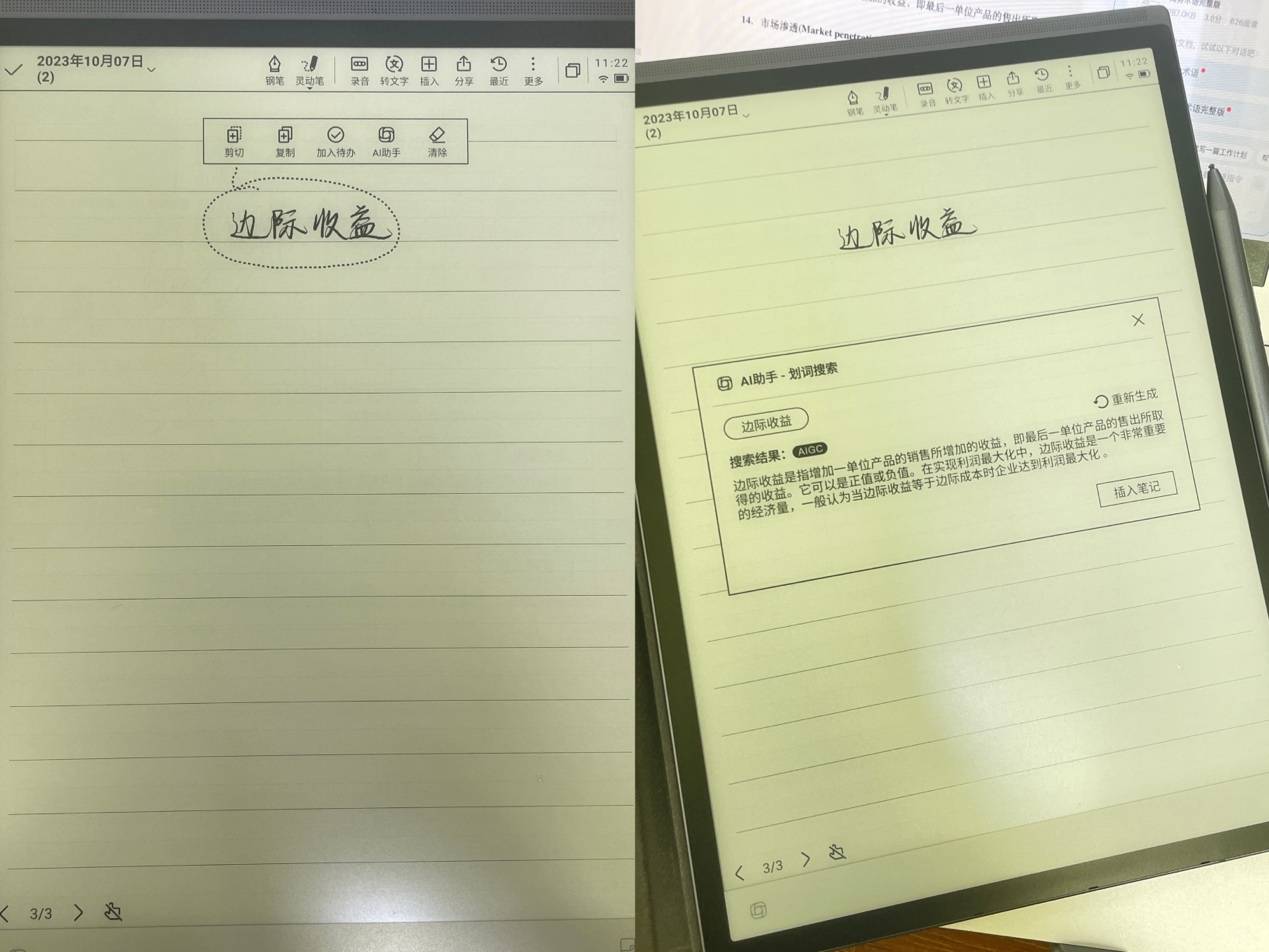 2023年10月07日
(2)
钢笔 灵动笔 录音 转文字 插入 分享 最近 更多
11:22
剪切 复制 加入待办 AI助手 清除
边际收益
3/3
14. 市场渗透(Market
的收益，即最后一单位产品的售出所
术语完整版
2023年10月07日
(2)
钢笔 灵动笔 录音 转文字 插入 分享 最近 更多
11:22
边际收益
AI助手 - 划词搜索
边际收益
重新生成
搜索结果： AIGC
边际收益是指增加一单位产品的销售所增加的收益，即最后一单位产品的售出所取
得的收益。它可以是正值或负值。在实现利润最大化中，边际收益是一个非常重要
的经济量，一般认为当边际收益等于边际成本时企业达到利润最大化。
插入笔记
3/3